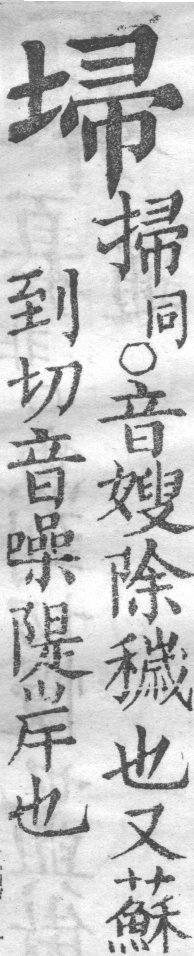 埽
掃同○音嫂除穢也又蘇
到切音噪隄岸也